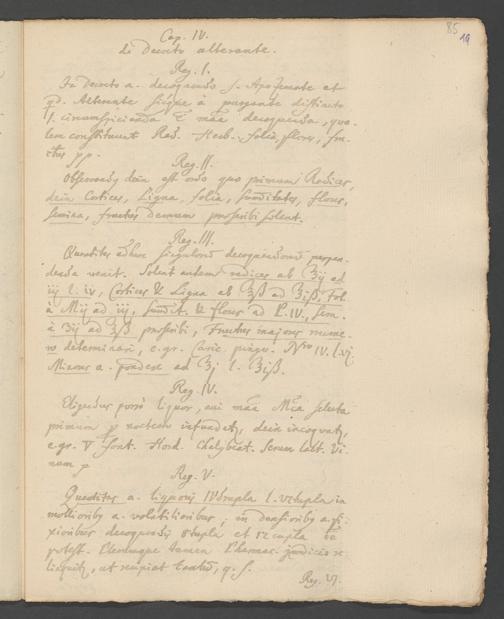 85
19
Cap. IV.
de Decocto alterante.
Reg. I.
In Decocto a. decoquendo s. Apozemate et
qd. Alterante sicque à purgante distincto
circumspicienda e mãe decoquenda, qua-
lem constituunt Rad. Herb. folia, flores, fru-
ctus pp.
Reg. II.
Observandq dein est ordo quo primum Radices,
dein Cortices, Ligna, folia, summitates, flores,
semina, fructus demum praescribi solent.
Reg. III.
Quantitas adhuc singulorum decoquendorum perpen-
denda venit. Solent autem radices ab ℥ij ad
iij l. iv, Cortices & Ligna ab ℥ß ad ℥iß, Fol.
à Mij ad iij, Sumit. & flores ad P. IV., sem.
à ʒij ad ℥ß praescribi, Fructus majores nume-
ro determinari, e.gr. Caric. pingu. Nro IV. l. vj.
Minores a. pondere ad ℥j l. ℥iß.
Reg. IV.
Eligendus porrò liquor, cui mãe selecta
primum p noctem infundatʒ, dein incoquatʒ,
e.gr. ▽ font. Hord. Chalybeat. Serum lact. Vi-
num p
Reg. V.
Quantitas a. liquoris IVdrupla l. vctupla in
mollioribʒ a. volatilioribus, in densioribʒ a. fi-
xioribus decoquendis 8tupla et 12cupla ee
potest. Plerumque tamen Pharmac. judicio re-
linquitʒ, ut recipiat tantum, q. s.
Reg. VI.